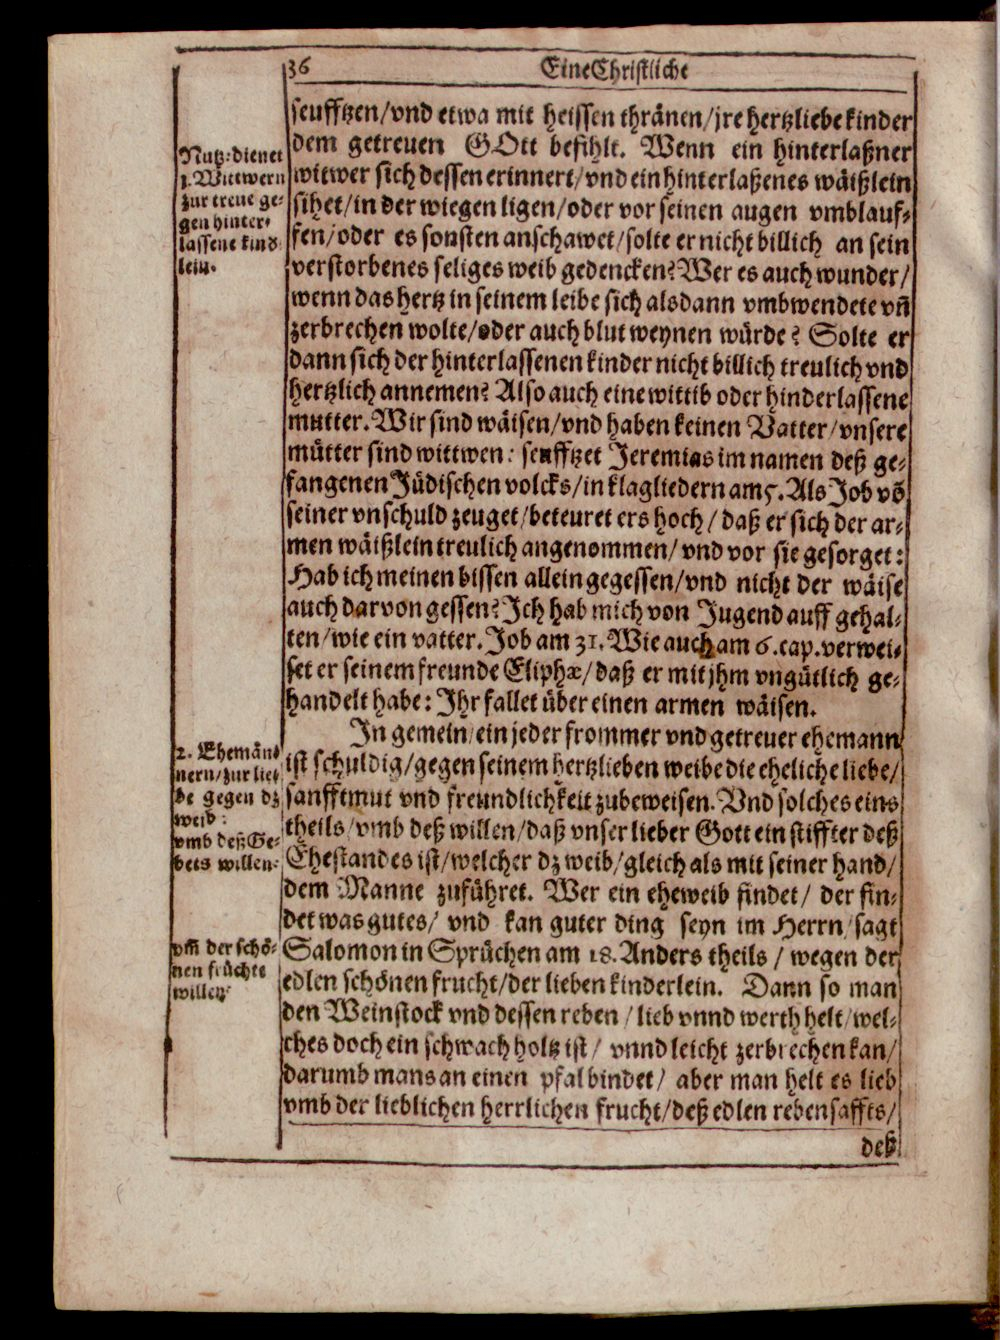 36 Eine Christliche
seufftzen/vnd etwa mit heissen thränen/jre hertzliebe kinder
dem getreuen GOtt befihlt. Wenn ein hinterlaßner
witwer sich dessen erinnert/vnd ein hinterlaßenes wäißlein
sihet/in der wiegen ligen/oder vor seinen augen vmblauf-
fen/oder es sonsten anschawet/solte er nicht billich an sein
verstorbenes seliges weib gedencken? Wer es auch wunder/
wenn das hertz in seinem leibe sich alsdann vmbwendete vñ
zerbrechen wolte/oder auch blut weynen würde? Solte er
dann sich der hinterlassenen kinder nicht billich treulich vnd
hertzlich annemen? Also auch eine wittib oder hinderlassene
mutter. Wir sind wäisen/vnd haben keinen Vatter/vnsere
mütter sind wittwen: seufftzet Jeremias im namen deß ge-
fangenen Jüdischen volcks/in klagliedern am 5. Als Job võ
seiner vnschuld zeuget/beteuret ers hoch/daß er sich der ar-
men wäißlein treulich angenommen/vnd vor sie gesorget:
Hab ich meinen bissen allein gegessen/vnd nicht der wäise
auch darvon gessen? Ich hab mich von Jugend auff gehal-
ten/wie ein vatter. Job am 31. Wie auch am 6. cap. verwei-
set er seinem freunde Eliphæ/daß er mit jhm vngütlich ge-
handelt habe: Ihr fallet über einen armen wäisen.
In gemein/ein jeder frommer vnd getreuer ehemann
ist schuldig/gegen seinem hertzlieben weibe die eheliche liebe/
sanfftmut vnd freundlichkeit zubeweisen. Vnd solches eins
theils/vmb deß willen/daß vnser lieber Gott ein stiffter deß
Ehestandes ist/welcher dz weib/gleich als mit seiner hand/
dem Manne zuführet. Wer ein eheweib findet/ der fin-
det was gutes/ vnd kan guter ding seyn im Herrn/sagt
Salomon in Sprüchen am 18. Anders theils / wegen der
edlen schönen frucht/der lieben kinderlein. Dann so man
den Weinstock vnd dessen reben / lieb vnnd werth helt/wel-
ches doch ein schwach holtz ist/ vnnd leicht zerbrechen kan/
darumb mans an einen pfal bindet/ aber man helt es lieb
vmb der lieblichen herrlichen frucht/deß edlen rebensaffts/
deß
Nutz: dienet
1. Wittwern
zur treue ge-
gen hinter-
lassene kind-
lein.
2. Ehemän-
nern/zur lie-
be gegen dz
weib:
vmb deß Ge-
bets willen.
vm̃ der schö-
nen früchte
willen